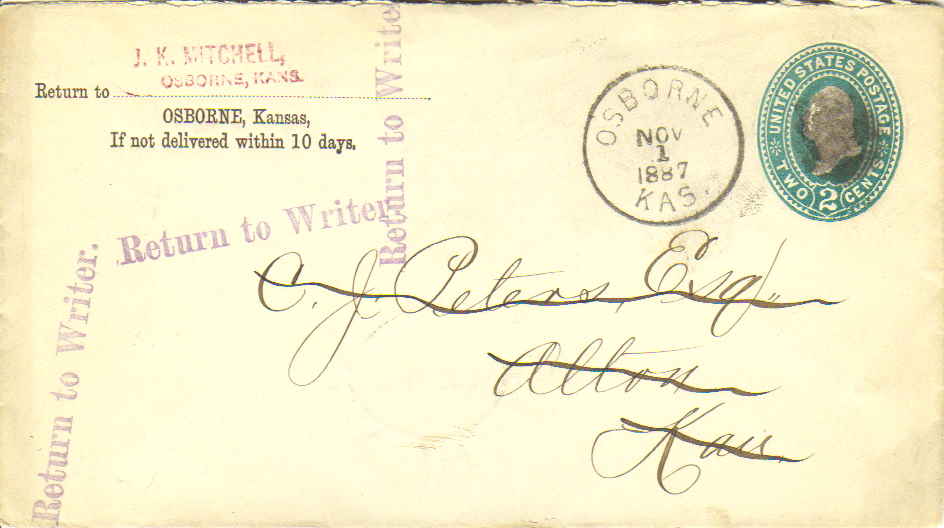 J. K. MITCHELL,
OSBORNE, KANS.
Return to
OSBORNE, Kansas,
If not delivered within 10 days.
OSBORNE
NOV
1
1887
KAS.
UNITED STATES POSTAGE
TWO 2 CENTS
Return to Writer
Return to Writer
Return to Writer.
C. J. Peters, Esq.
Alton
Kas.